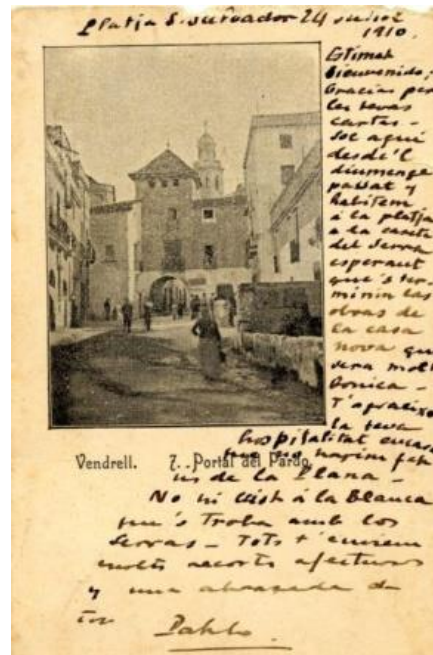 Platja S. Salvador 24 juliol
1910.
Estimat
Bienvenido;
Gracias per
las tevas
cartas -
Soc aquí
desde'l
diumenge
passat y
habitem
á la platja
a la caseta
del Serra
esperant
que's ter-
minin las
obras de
la casa
nova que
sera molt
bonica -
T'aprecio
la teva
hospitalitat encara
que no
de la Plana -
Vendrell. 7. Portal del Pardo.
No hi vist á la Blanca
que's troba amb los
Serras - Tots t'envien
molts recorts afectuosos
y una abrassada de
ton Pablo